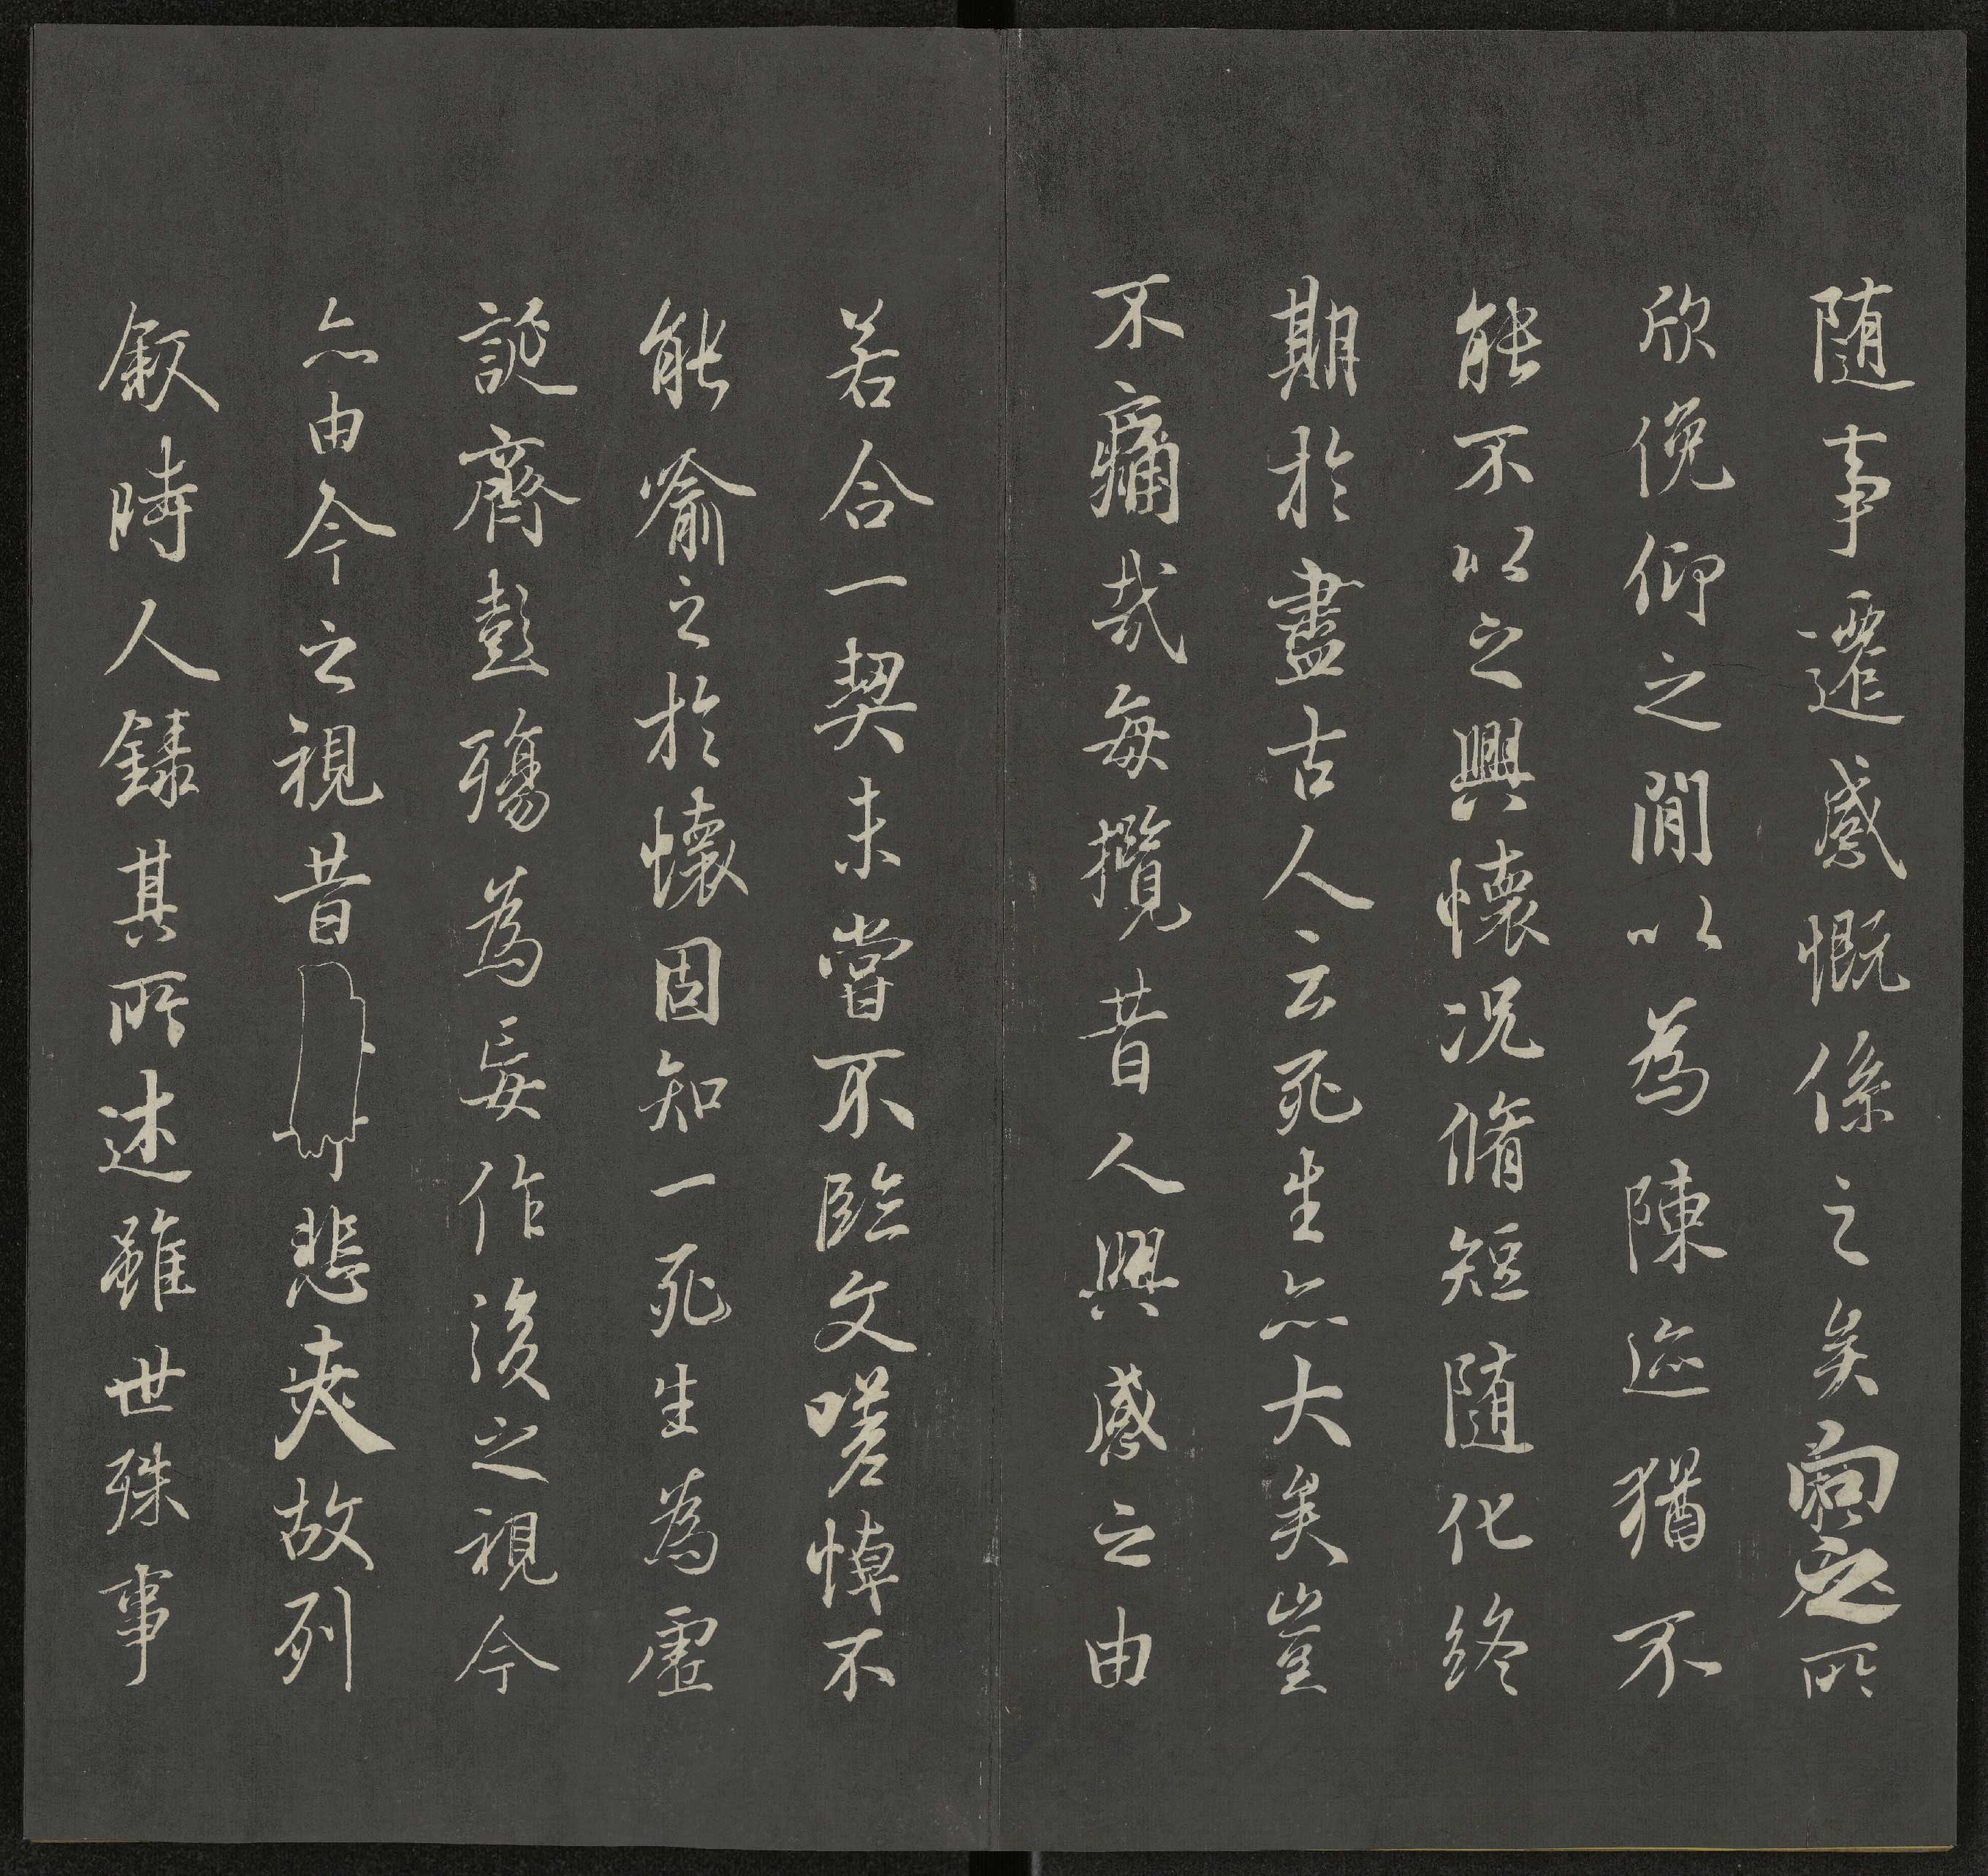 随事遷感慨係之矣向之所
欣俛仰之閒以為陳迹猶不
能不以之興懷況脩短随化終
期於盡古人云死生亦大矣豈
不痛哉每攬昔人興感之由
若合一契未嘗不臨文嗟悼不
能喻之於懷固知一死生為虛
誕齊彭殤為妄作後之視今
亦由今之視昔悲夫故列
敘時人錄其所述雖世殊事